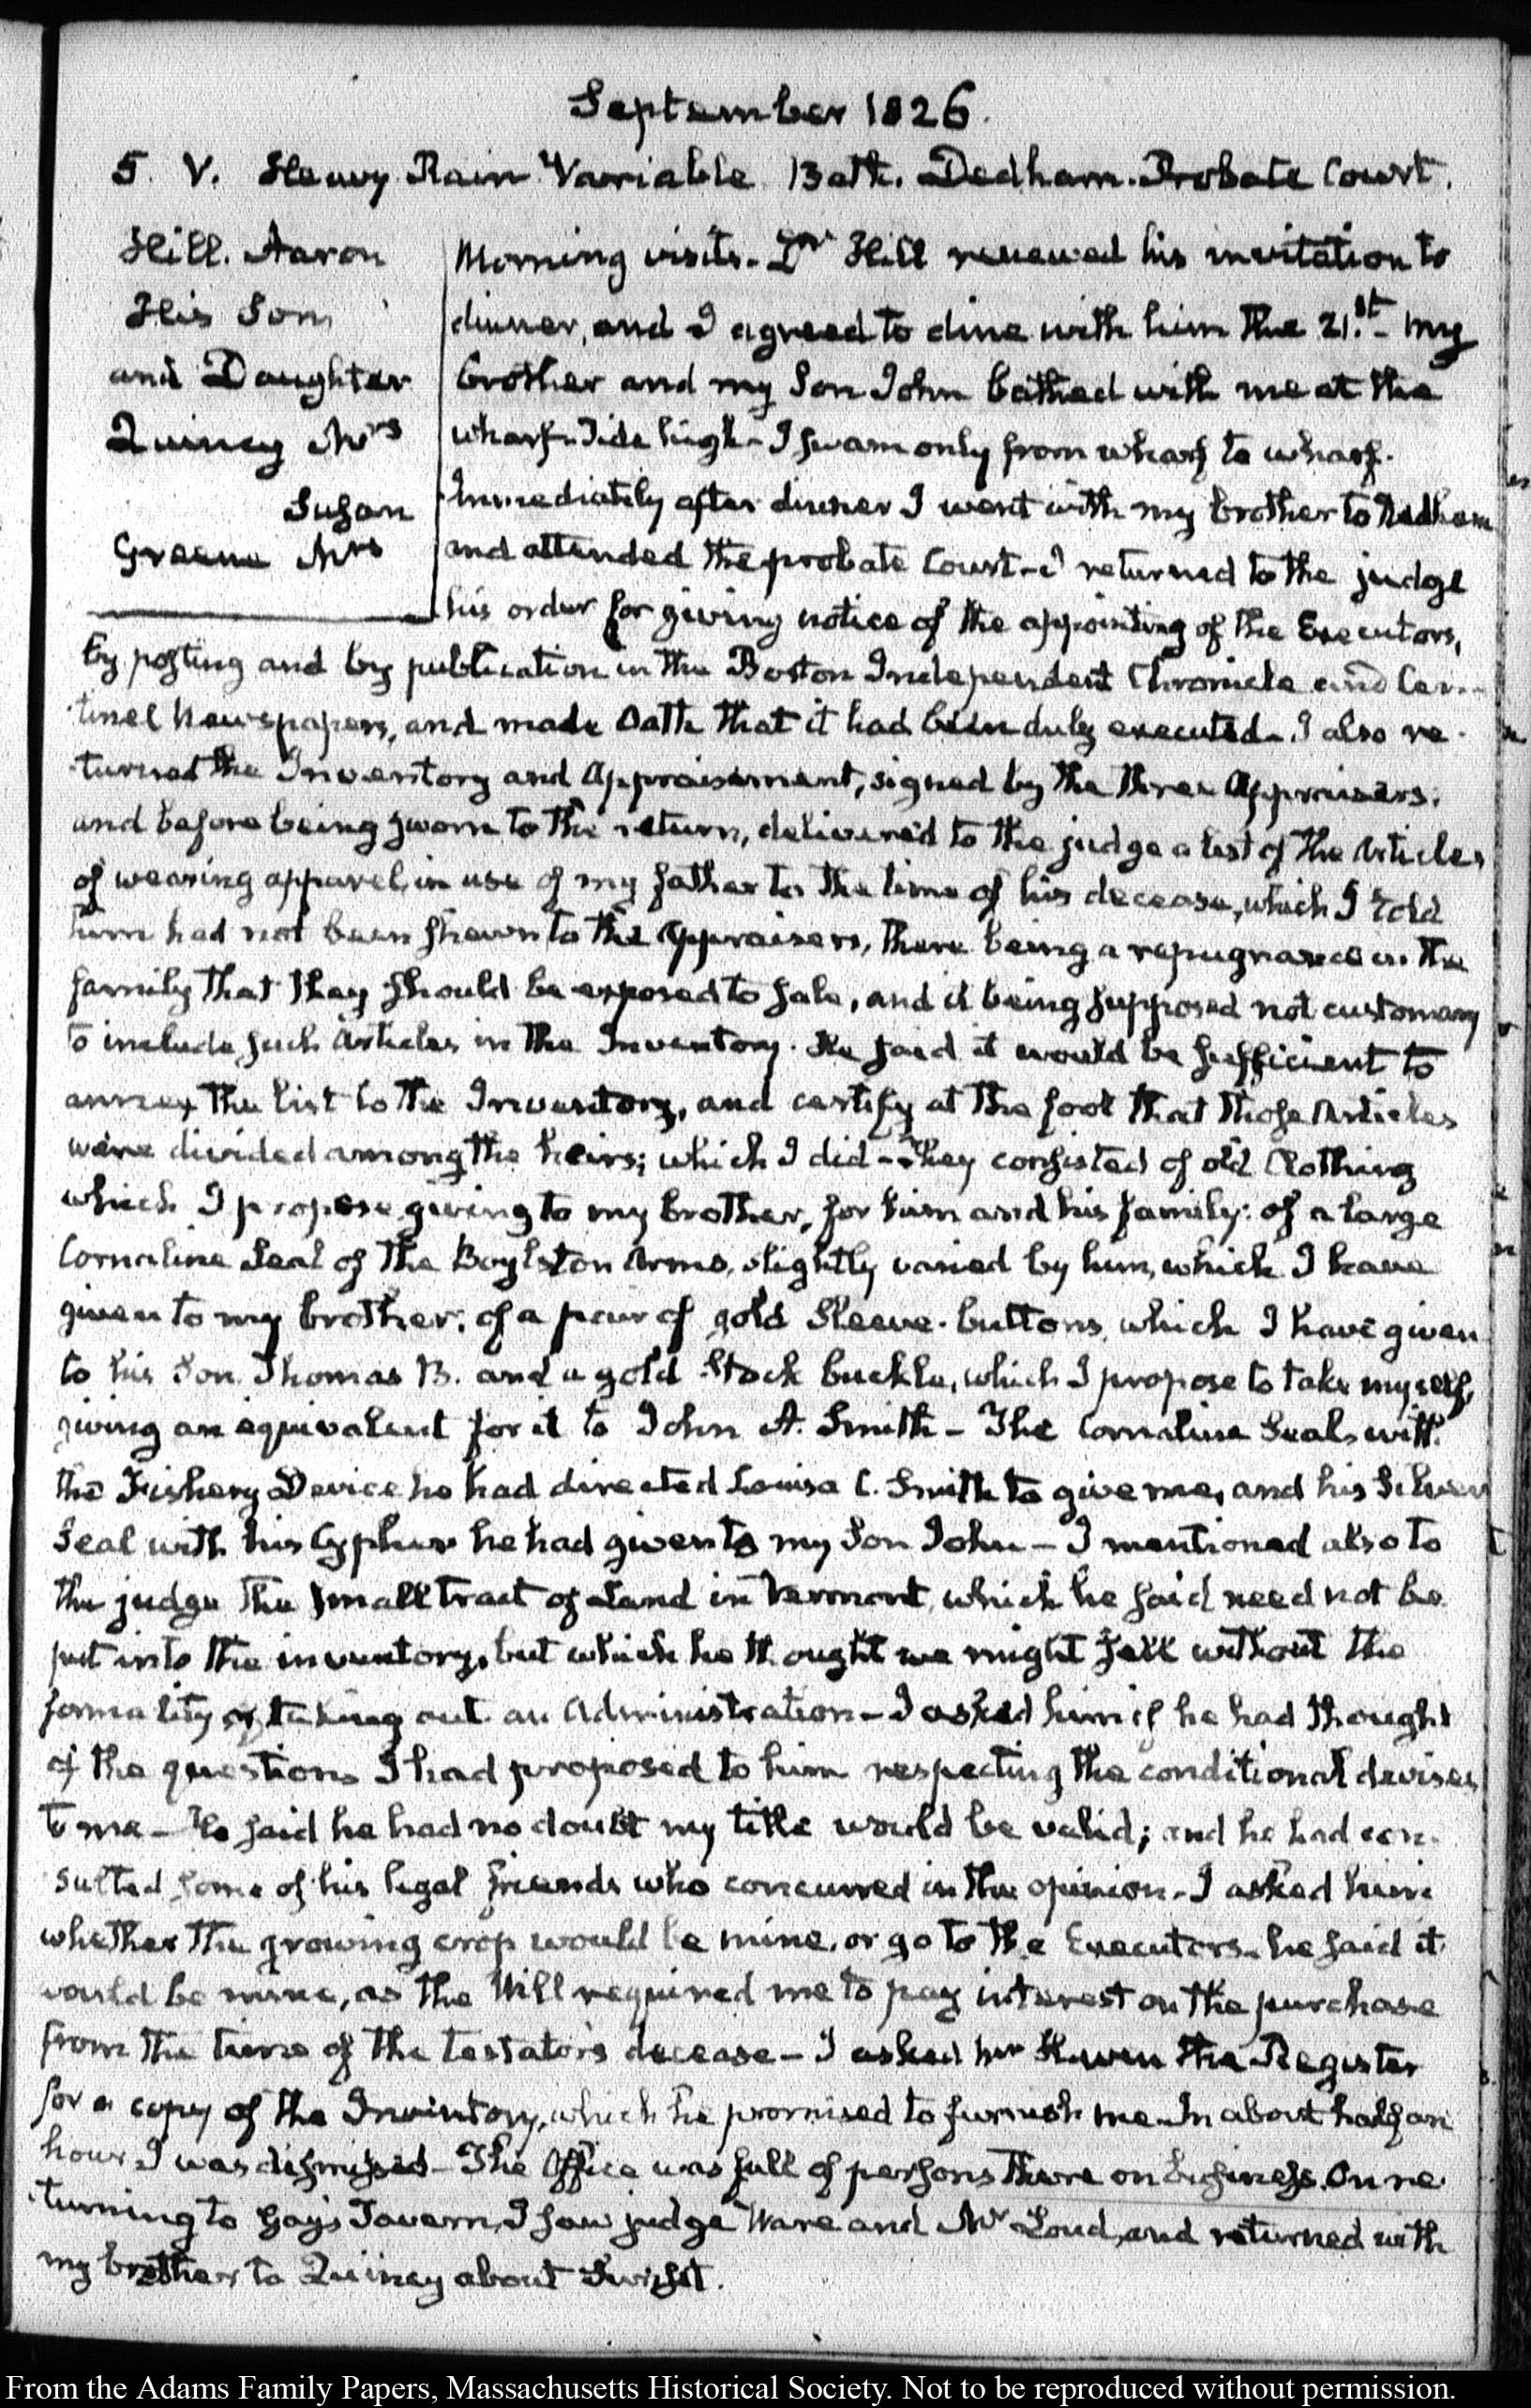 September 1826.
5. V. Heavy Rain Variable Bath. Dedham. Probate Court.
Hill. Aaron
His Son
and Daughter
Quincy Mrs
Susan
Greene Mrs
Morning visits. Dr Hill renewed his invitation to
dinner, and I agreed to dine with him the 21.st- My
brother and my Son John bathed with me at the
wharf. Tide high- I swam only from wharf to wharf.
Immediately after dinner I went with my brother to Dedham
and attended the probate Court- I returned to the judge
his order for giving notice of the appointing of the Executors,
by posting and by publication in the Boston Independent Chronicle and Cen-
tinel Newspapers, and made Oath that it had been duly executed- I also re-
turned the Inventory and Appraisement, signed by the three Appraisers.
and before being sworn to the return, delivered to the judge a list of the Articles
of wearing apparel, in use of my father to the time of his decease, which I told
him had not been shewn to the Appraisers, there being a repugnance in the
family that they should be exposed to sale, and it being supposed not customary
to include such Articles in the Inventory. He said it would be sufficient to
annex the list to the Inventory, and certify at the foot that those Articles
were divided among the heirs; which I did- They consisted of old Clothing
which I propose giving to my brother, for him and his family: of a large
Cornaline Seal of the Boylston Arms, slightly varied by him, which I have
given to my brother; of a pair of gold Sleeve-buttons, which I have given
to his Son Thomas B. and a gold Stock buckle, which I propose to take myself,
giving an equivalent for it to John A. Smith- The Cornaline Seal with
the Fishery Device he had directed Louisa C. Smith to give me, and his Silver
Seal with his Cypher he had given to my Son John- I mentioned also to
the judge the small tract of Land in Vermont, which he said need not be
put into the inventory, but which he thought we might sell without the
formality of taking out an Administration- I asked him if he had thought
of the questions I had proposed to him respecting the conditional devises
to me- He said he had no doubt my title would be valid; and he had con-
sulted some of his legal friends who concurred in the opinion- I asked him
whether the growing crop would be mine, or go to the Executors- he said it
would be mine, as the Will required me to pay interest on the purchase
from the time of the testator's decease- I asked Mr Haven the Register
for a copy of the Inventory, which he promised to furnish me- In about half an
hour I was dismissed- The Office was full of persons there on business. On re-
turning to Gay's Tavern, I saw judge Ware and Mr Loud, and returned with
my brother to Quincy about Twilight.
From the Adams Family Papers, Massachusetts Historical Society. Not to be reproduced without permission.